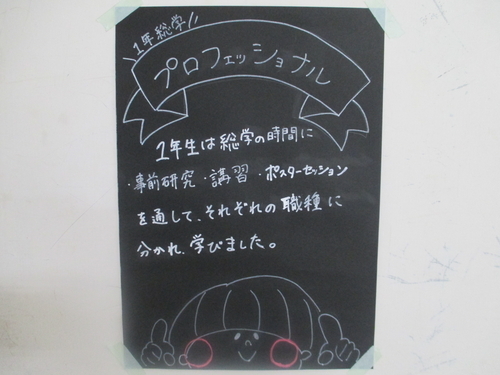 \1年総学//
プロフェッショナル
1年生は総学の時間に
・事前研究・講習・ポスターセッション
を通して、それぞれの職種に
分かれ、学びました。